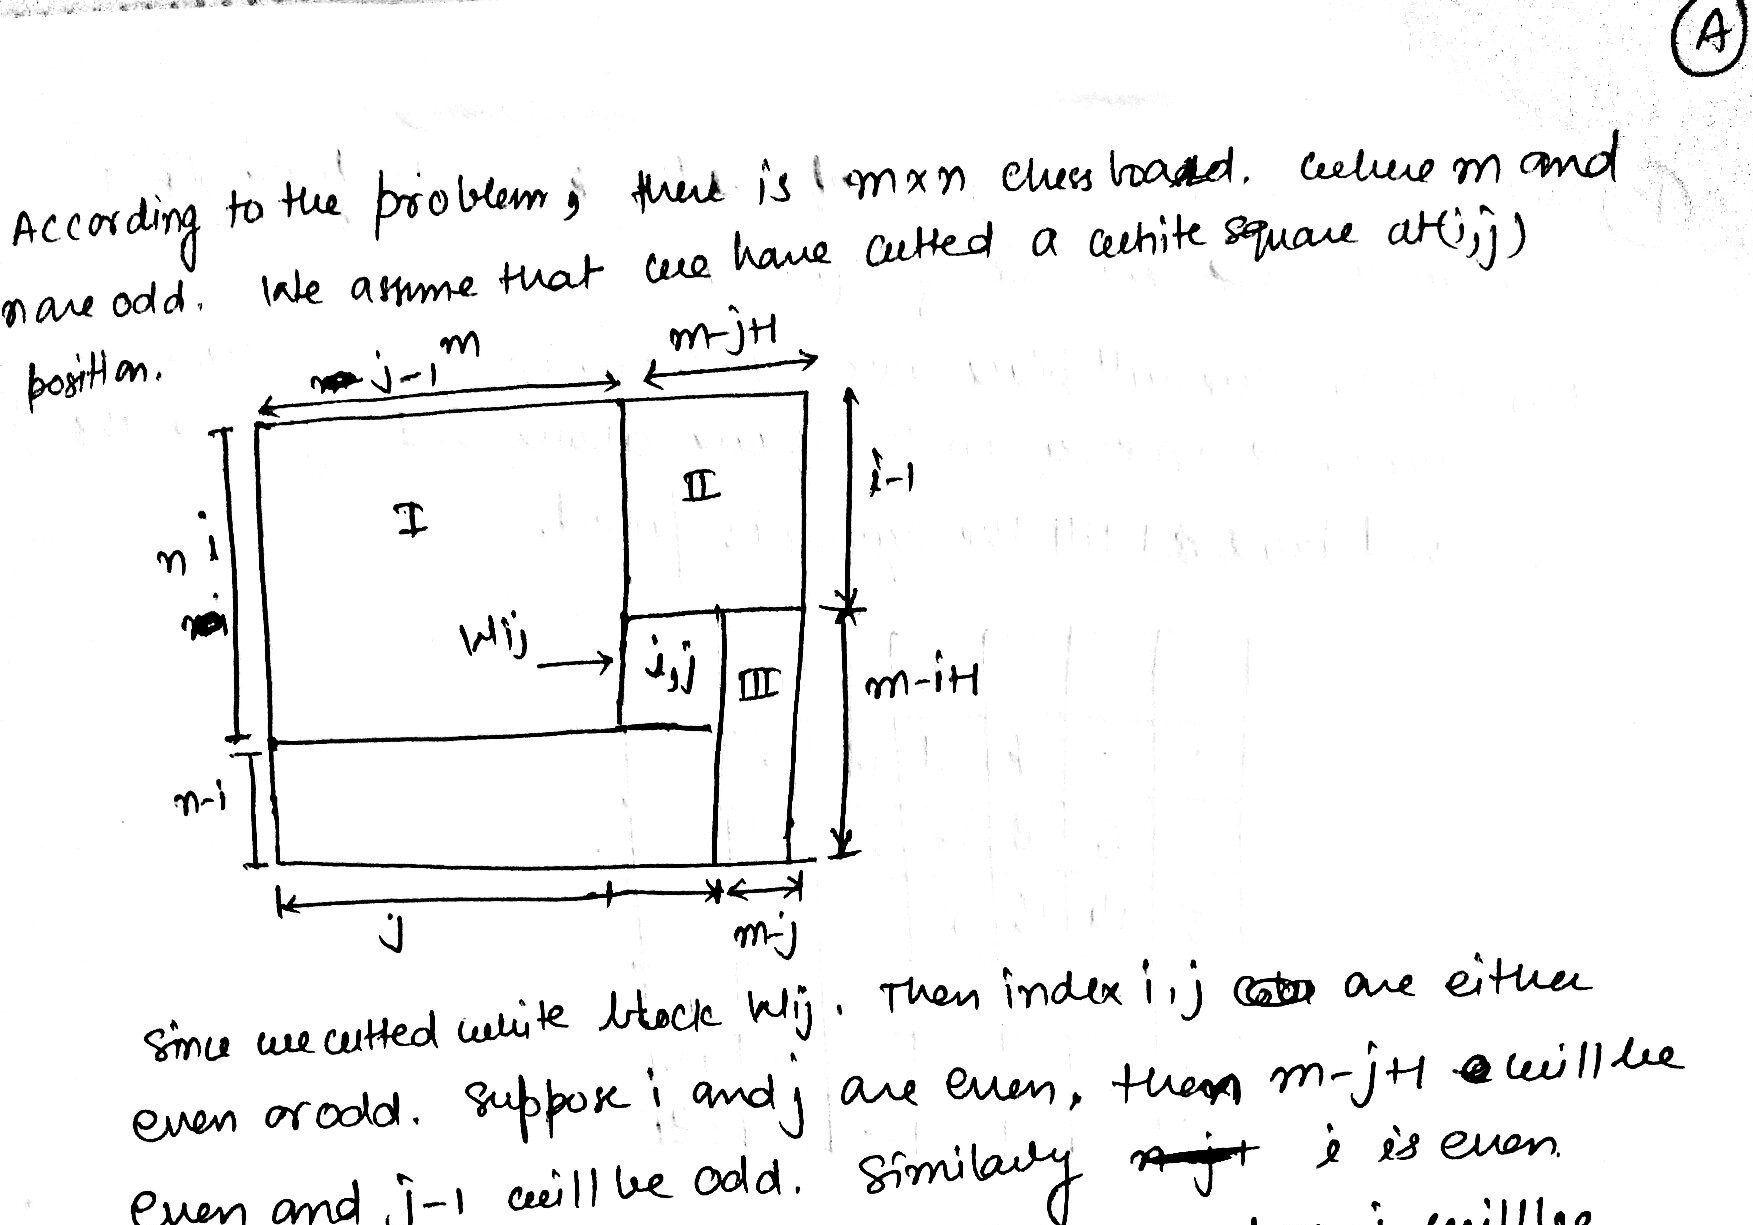 A
According to the problem, there is m×n chess board. where m and
n are odd. We assume that we have cutted a white square at (i,j)
position.
j-1 m m-j+1
I II i-1
n i
Wij i,j III m-i+1
n-i
j m-j
Since we cutted white block Wij. Then index i,j are either
even or odd. Suppose i and j are even, then m-j+1 will be
even and j-1 will be odd. Similarly i is even.
will be